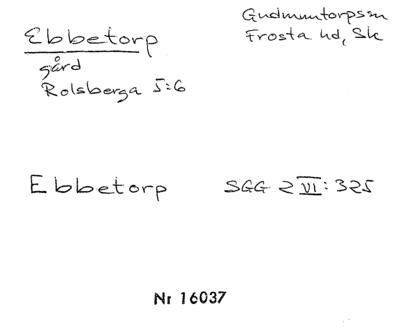 Ebbetorp
gård
Rolsberga 5:6
Gudmuntorps sn
Frosta hd, Sk
Ebbetorp
SGG 2 VI: 325
Nr 16037